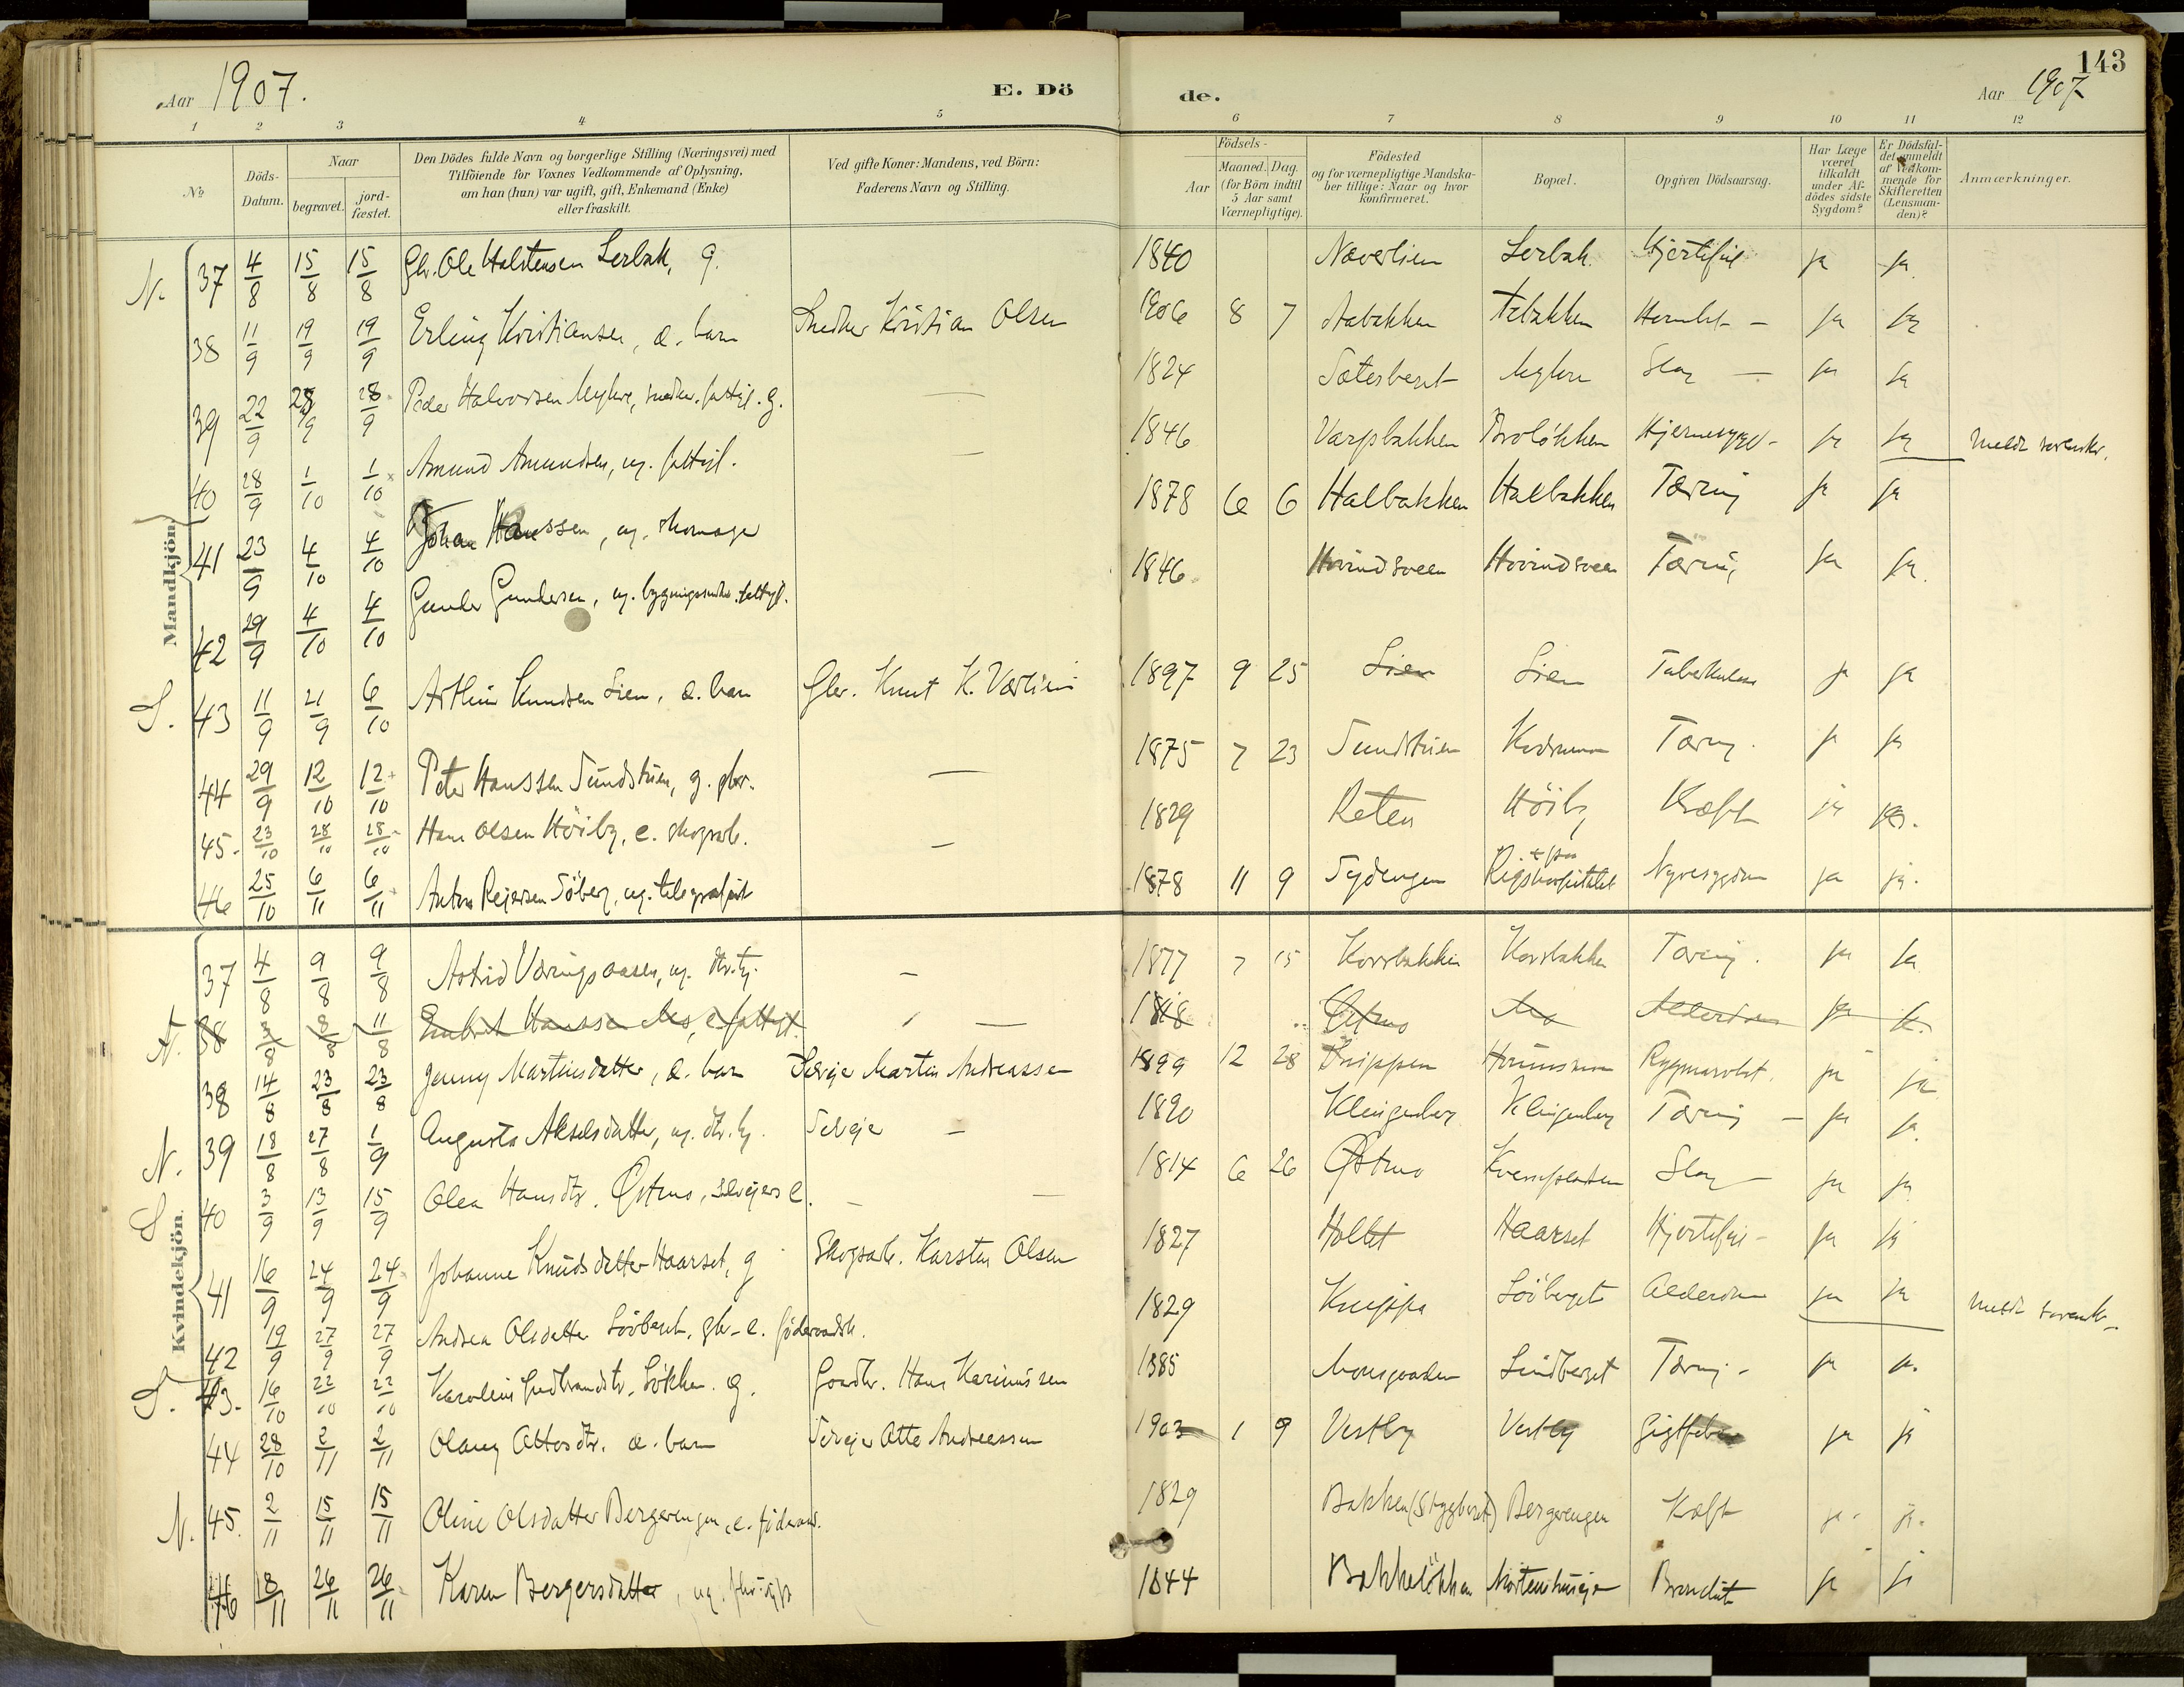 Aar 1907. E. Dö de. Aar 1907 143
1 2 3 4 5 6 7 8 9 10 11 12
№ Döds-Datum. Naar begravet. jord-fæstet. Den Dödes fulde Navn og borgerlige Stilling (Næringsvei) med Tilföiende for Voxnes Vedkommende af Oplysning, om han (hun) var ugift, gift, Enkemand (Enke) eller fraskilt. Ved gifte Koner: Mandens, ved Börn: Faderens Navn og Stilling. Födsels- Aar Maaned. Dag. (for Börn indtil 5 Aar samt Værnepligtige). Födested og for værnepligtige Mandskaber tillige: Naar og hvor konfirmeret. Bopæl. Opgiven Dödsaarsag. Har Læge været tilkaldt under Afdödes sidste Sygdom? Er Dödsfaldet anmeldt af Vedkommende for Skifteretten (Lensmanden)? Anmærkninger.
Mandkjön.
N. 37 4/8 15/8 15/8 Gbr. Ole Halstensen Lerbak, g. 1840 Næverlien Lerbak Hjertefeil ja ja.
38 11/9 19/9 19/9 Erling Kristiansen, æ. barn Snedker Kristian Olsen 1906 8 7 Aabakken Aabakken ja ja
39 22/9 28/9 28/9 Peder Halvorsen Myhre, snedker, fattigl. g. — 1824 Sæterberget Myhre Slag — ja ja
40 28/9 1/10 1/10 Amund Amundsen, ug. fattigl. — 1846 Varpsbakken Broløkken Hjernesygd- ja ja
41 23/9 4/10 4/10 Johan Hanssen, ug. skomager 1878 6 6 Halbakken Halbakken Tæring ja ja
42 29/9 4/10 4/10 Gunder Gundersen, ug. bygningssnedker. fattigl. 1846 Hovindsveen Hovindsveen Tæring ja ja.
S. 43 11/9 21/9 6/10 Arthur Knudsen Lien, æ. barn Gbr. Knut K. Værlien 1897 9 25 Lien Lien Tuberkulose ja ja
44 29/9 12/10 12/10 Peter Hanssen Sundstuen, g. gbr. — 1875 7 23 Sundstuen Tæring. ja ja
45. 23/10 28/10 28/10 Hans Olsen Höiby, e. skogsarb. — 1829 Reten Höiby Kræft ja ja.
46 25/10 6/11 6/11 Anton Reiersen Söberg, ug. telegrafist 1878 11 9 Sydengen † paa Rigshospitalet Nyresygdom ja ja.
Kvindekjön.
37 4/8 9/8 9/8 Astrid Væringsaasen, ug. — 1877 7 15 Korsbakken Korsbakken Tæring. ja ja
N. 38 3/8 8/8 11/8 Embret Hanssen Mo, e fattigl. — 1818 Östmo Mo Alderdom ja ja.
38 14/8 23/8 23/8 Jenny Martinsdatter, æ. barn Selveier Martin Andreassen 1899 12 28 Knippen Rygmarvsbet. ja ja
N. 39 18/8 27/8 1/9 Augusta Akselsdatter, ug. Selveier — 1890 Klingenberg Klingenberg Tæring — ja ja.
S 40 3/9 13/9 15/9 Olea Hansdtr. Östmo, selveiers e. — 1814 6 26 Östmo Kverneplassen Slag ja ja
41 16/9 24/9 24/9 Johanne Knudsdatter Haarset, g Skogsarb. Karsten Olsen 1827 Holtet Haarset Hjertefeil - ja ja
42 19/9 27/9 27/9 Andrea Olsdatter Lövberget, gbr-e. föderaadsk. 1829 Knippa Lövberget Alderdom ja ja
S. 43. 16/10 22/10 22/10 Karoline Gudbrandsdtr. Løkken. g. Gaardbr. Hans Karinussen 1885 Monsgaarden Lindberget Tæring - ja ja.
44 28/10 2/11 2/11 Olaug Ottosdtr. æ. barn Selveier Otto Andreassen 1903 1 9 Vestby Vestby Gigtfeber ja ja
N. 45. 2/11 15/11 15/11 Oline Olsdatter Bergerengen, e. föderaad. 1829 Bakken (Styggberget) Bergerengen Kræft ja. ja.
46 18/11 26/11 26/11 Karen Bergersdatter, ug. 1844 Bakkeløkken Mortenshuseje Brandsaar ja ja